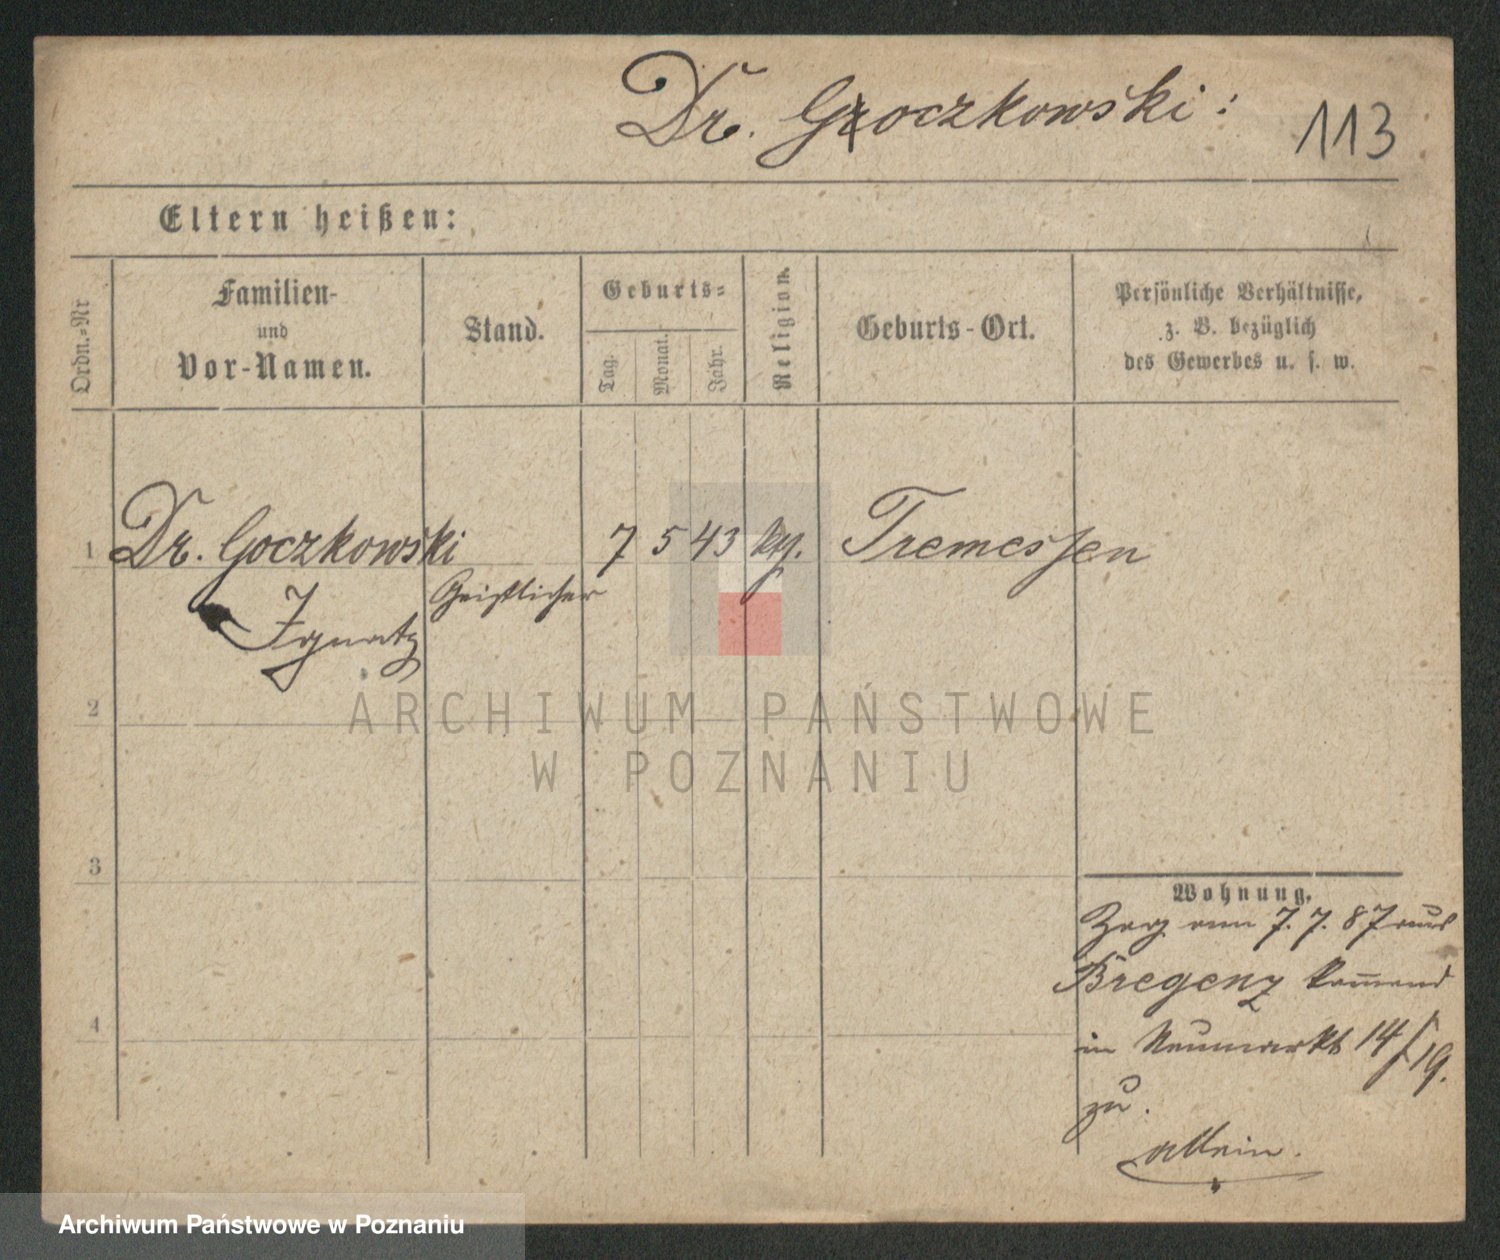 Dr. Goczkowski:
113
Eltern heißen:
Ordn.-Nr
Familien-
und
Vor-Namen.
Stand.
Geburts-
Tag.
Monat.
Jahr.
Religion.
Geburts-Ort.
Persönliche Verhältnisse,
z. B. bezüglich
des Gewerbes u. s. w.
1 Dr. Goczkowski 7 5 43 Tremessen
Geistlicher
Ignatz
2
ARCHIWUM PAŃSTWOWE
W POZNANIU
3
Wohnung.
7. 7. 87 aus
Bregenz kommend
4
in Neumarkt 14/19.
zu.
allein.
Archiwum Państwowe w Poznaniu